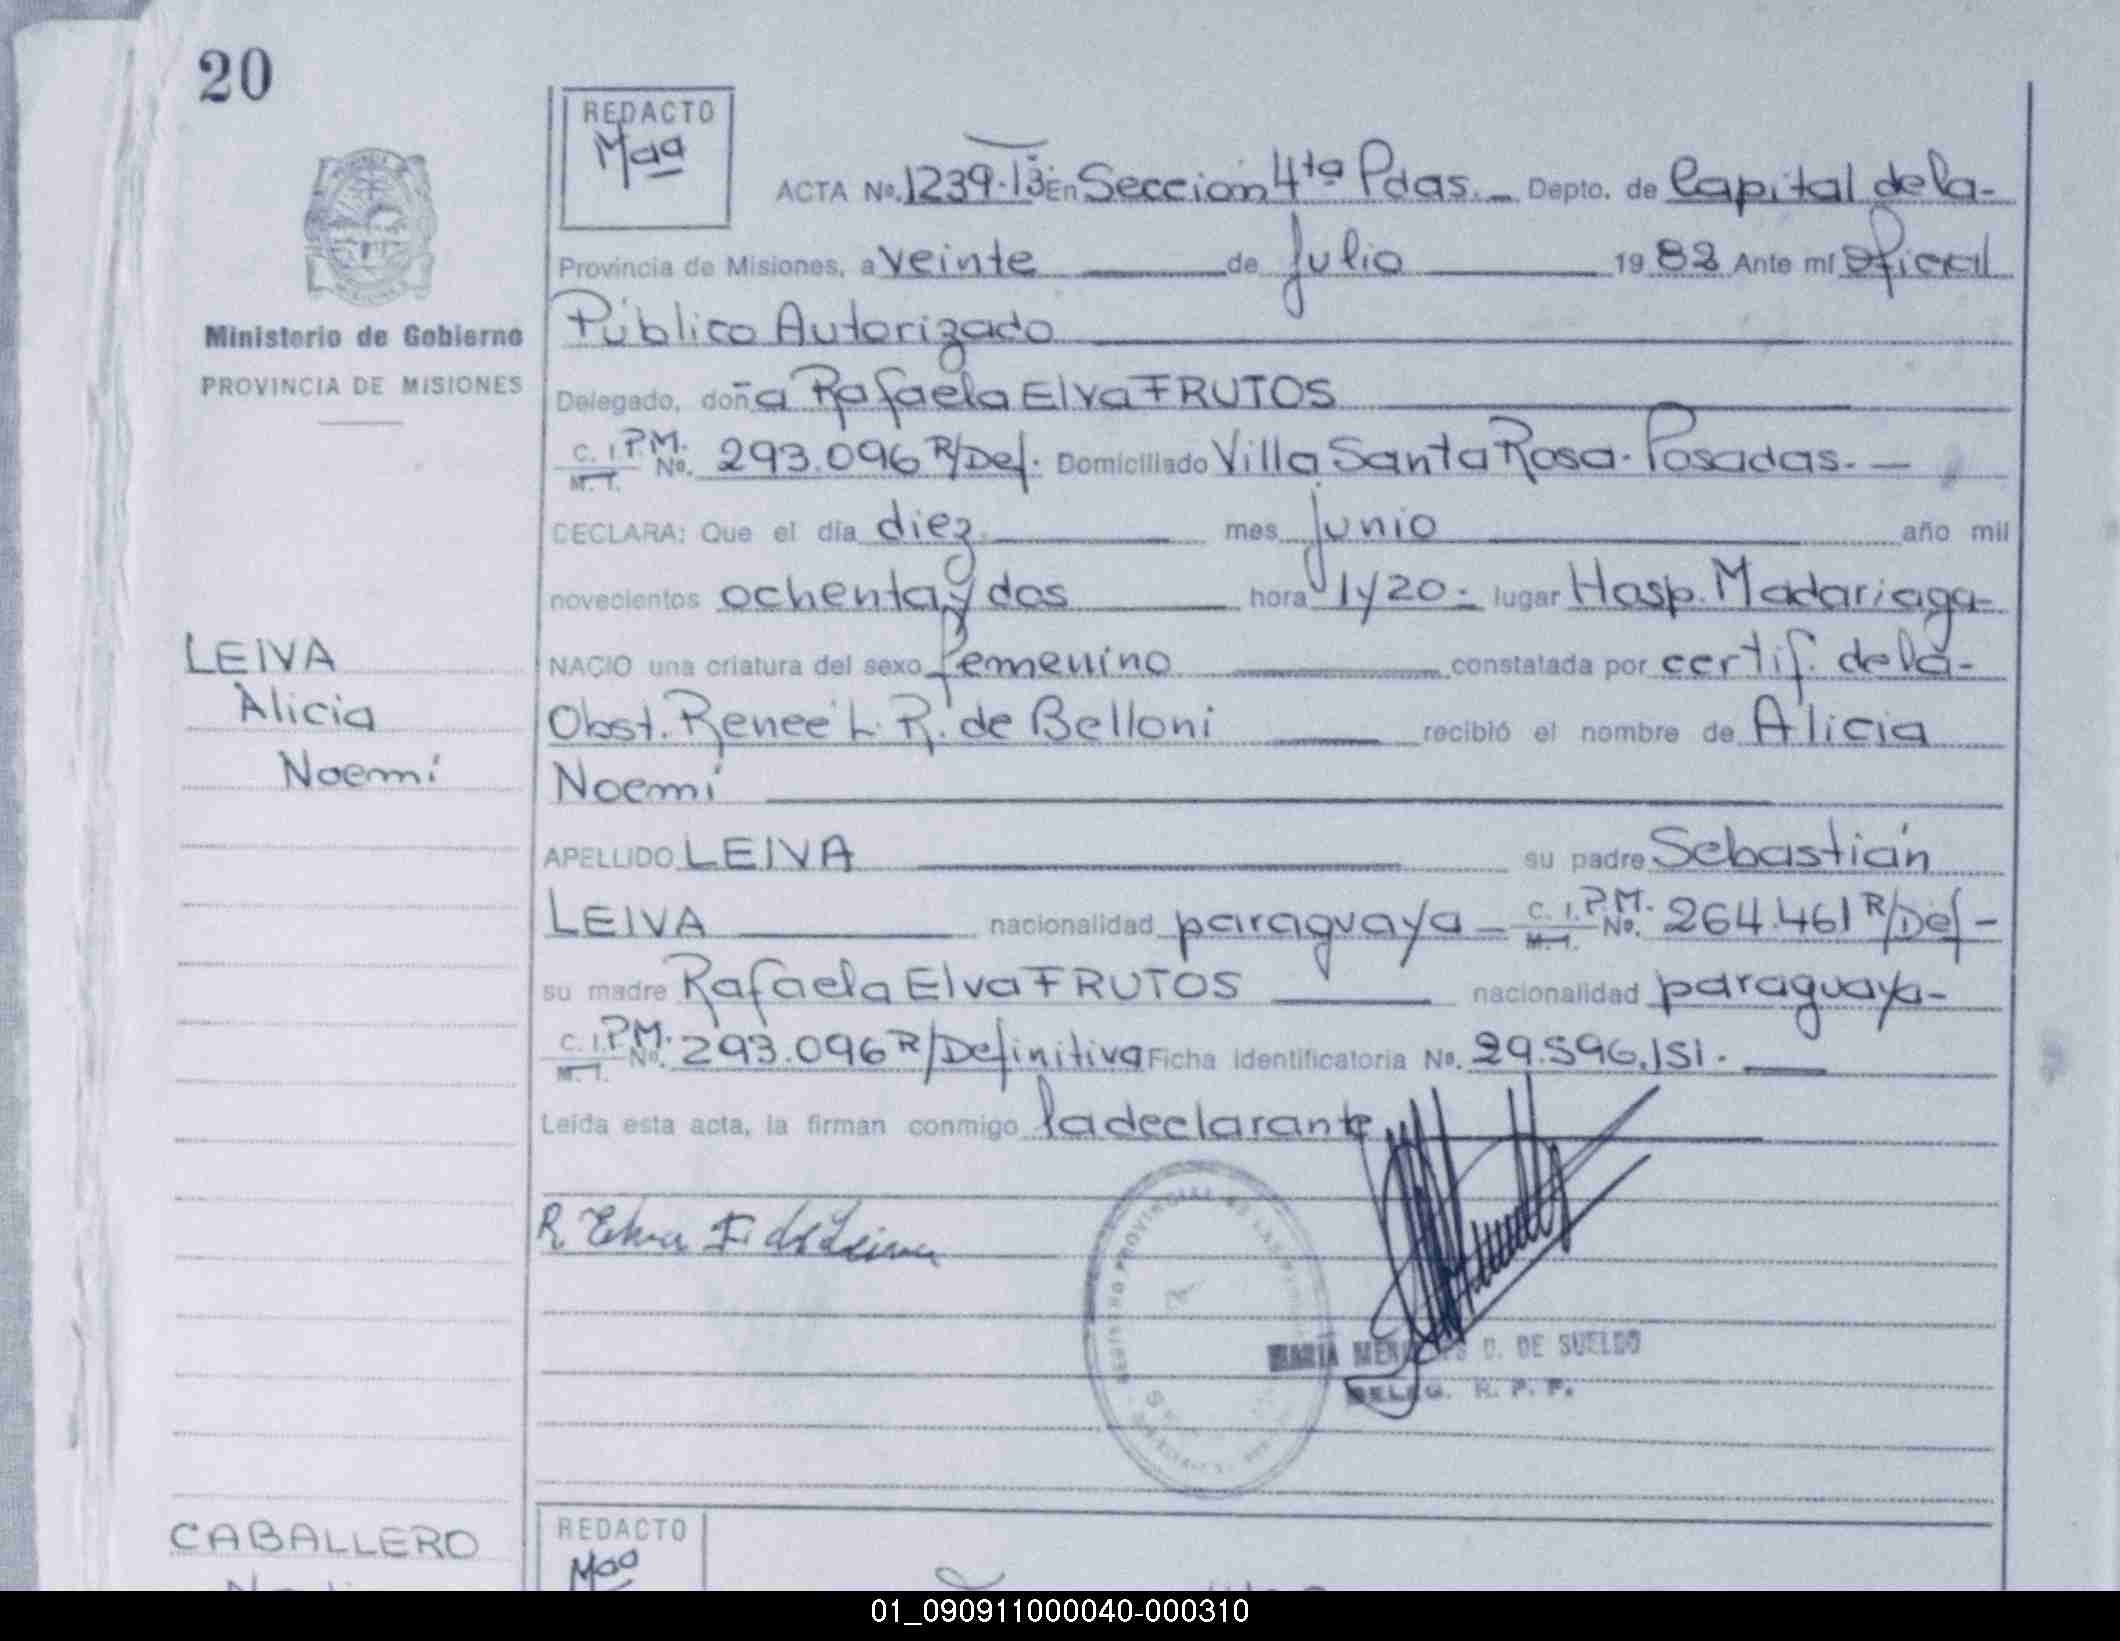 20
REDACTO
Mªª
ACTA No. 1239. 13 En Sección 4ta Pdas. _ Depto. de Capital de la-
Provincia de Misiones, a veinte de julio 1982 Ante mí Oficial
Público Autorizado
Ministerio de Gobierno
PROVINCIA DE MISIONES
Delegado, doña Rafaela Elva FRUTOS
C. I. P.M. No. 293.096 R/Def. Domiciliado Villa Santa Rosa. Posadas. —
M. I.
DECLARA: Que el día diez mes junio año mil
novecientos ochenta y dos hora 1y20.- lugar Hosp. Madariaga-
LEIVA
NACIO una criatura del sexo femenino constatada por certif. de la-
Alicia
Obst. Renee L. R. de Belloni recibió el nombre de Alicia
Noemí
Noemí
APELLIDO LEIVA su padre Sebastián
LEIVA nacionalidad paraguaya - C. I. P.M. No. 264.461 R/Def-
M. I.
su madre Rafaela Elva FRUTOS nacionalidad paraguaya-
C. I. P.M. No. 293.096 R/Definitiva Ficha identificatoria No. 29.596.151.
M. I.
Leída esta acta, la firman conmigo la declarante
R Elva F. de Leiva
REGISTRO PROVINCIAL DE LAS
MARIA D. DE SUELDO
DELEG. R. P. P.
CABALLERO
REDACTO
Mªª
01_090911000040-000310